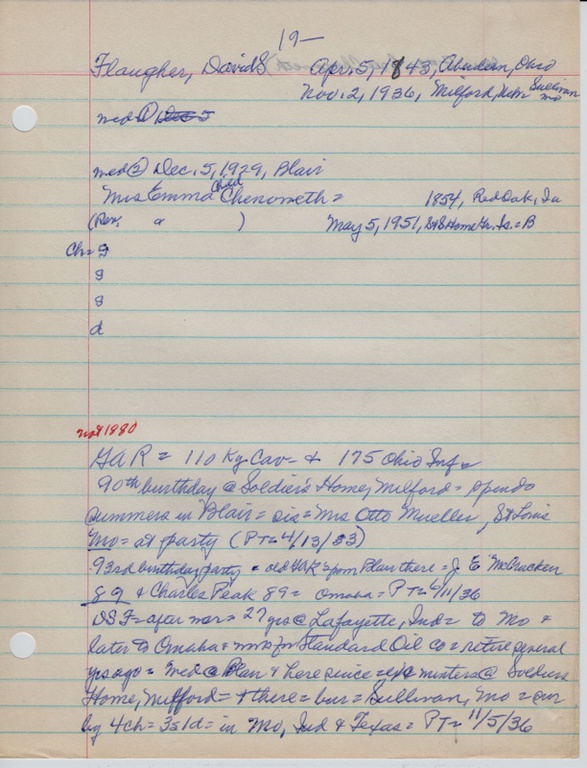 19—
Flaugher, David S Apr. 5, 1843, Aberdeen, Ohio
Nov. 2, 1936, Milford, Nebr Sullivan Mo
med ① Dec 5
med ② Dec. 5, 1929, Blair
Mrs Emma Chenoweth = 1854, Red Oak, Ia
(Rev, a ) May 5, 1951, S&S Home Gr. Is. = B
Ch = s
s
s
d
not 1880
GAR = 110 Ky Cav - & 175 Ohio Inf =
90th birthday @ Soldier's Home, Milford = spends
summers in Blair = sis = Mrs Otto Mueller, St Louis
Mo = at party (PT = 4/13/33)
93rd birthday party = old GAR = from Blair there = J E McCracken
89 & Charles Peak 89 = Omaha = PT = 4/11/36
DSF = after war = 27 yrs @ Lafayette, Ind = to Mo &
later to Omaha = works for Standard Oil Co = retire several
yrs ago = med @ Blair & here since = winters @ Soldiers
Home, Milford = & there = bur = Sullivan, Mo = sur
by 4 ch = 3s 1d = in Mo, Ind & Texas = PT = 11/5/36